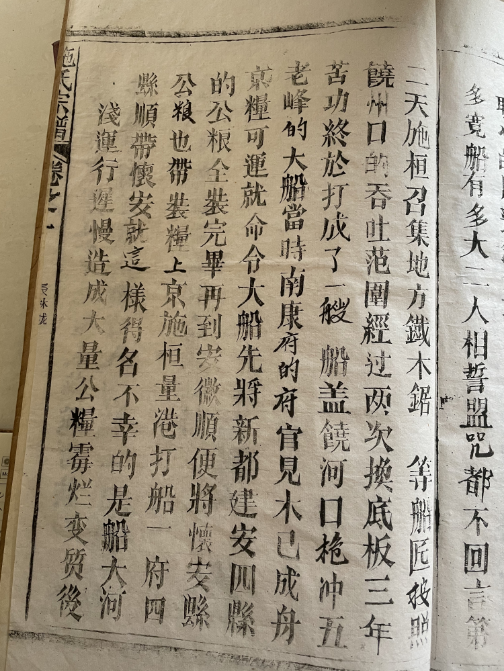 多竟船有多大二人相誓盟咒都不回言第
二天施桓召集地方鐵木鋸 等船匠按照
饒州口的吞吐范圍經过两次換底板三年
苦功終於打成了一艘 船盖饒河口桅冲五
老峰的大船當時南康府的府官見木已成舟
京糧可運就命令大船先將新都建安四縣
的公粮全裝完畢再到安徽順便將懷安縣
公粮也帶裝糧上京施桓量港打船一 府四
縣順帶懷安就這樣得名不幸的是船大河
淺運行遲慢造成大量公糧霉烂变质後
施氏宗譜 卷之一